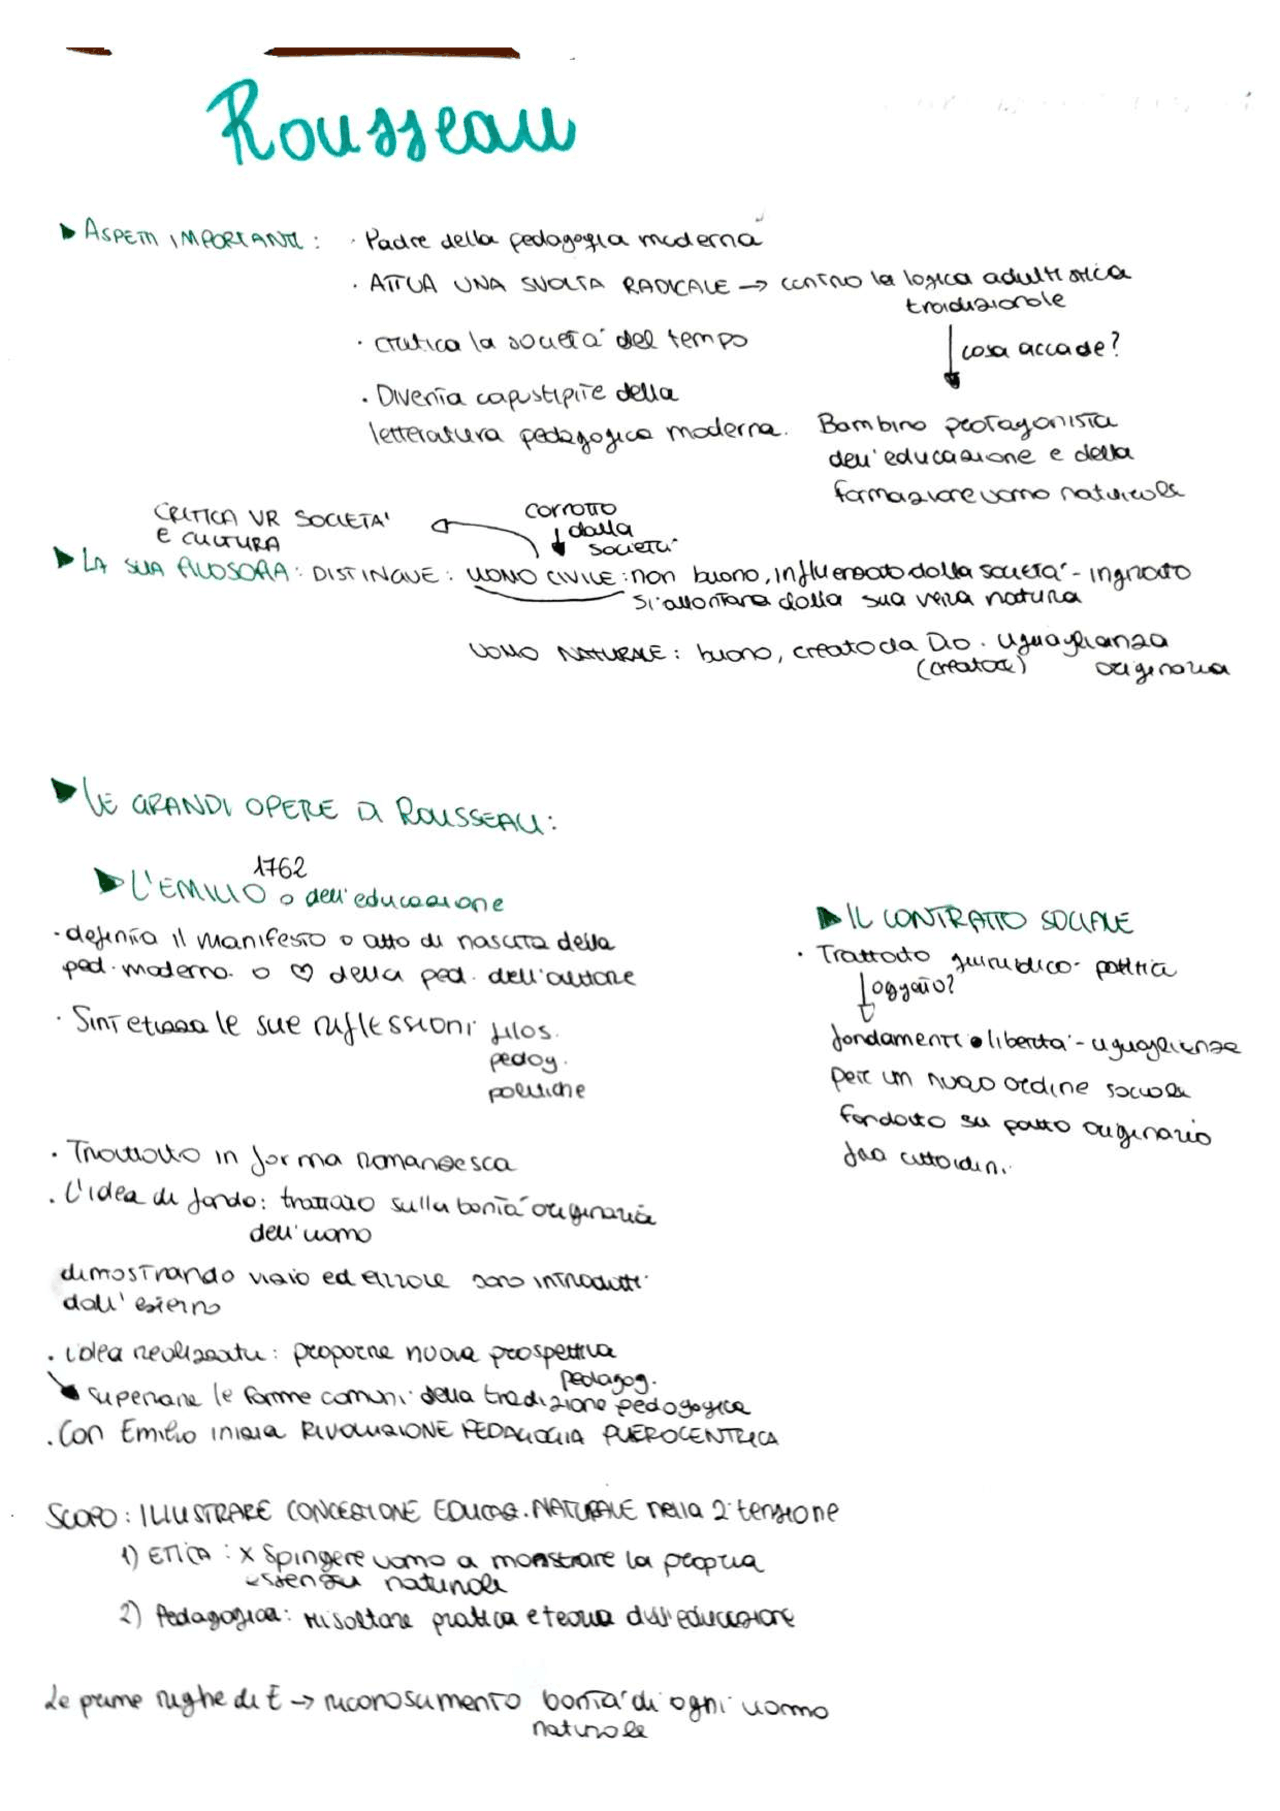 Rousseau
▶ ASPETTI IMPORTANTI: · Padre della pedagogia moderna
· ATTUA UNA SVOLTA RADICALE → contro la logica adultistica
tradizionale
↓ cosa accade?
· critica la società del tempo
· Diventa capostipite della
letteratura pedagogica moderna.
Bambino protagonista
dell'educazione e della
formazione uomo naturale
CRITICA VR SOCIETA'
E CULTURA
corrotto
↓ dalla
società
▶ LA SUA FILOSOFIA: DISTINGUE: UOMO CIVILE: non buono, influenzato dalla società - ingrato
si allontana dalla sua vera natura
UOMO NATURALE: buono, creato da Dio. Uguaglianza
(creatore) originaria
▶ LE GRANDI OPERE DI ROUSSEAU:
1762
▶ L'EMILIO o dell'educazione
· definito il manifesto o atto di nascita della
ped. moderna. o ♡ della ped. dell'autore
· Sintetizza le sue riflessioni filos.
pedag.
politiche
· Trattato in forma romanzesca
· L'idea di fondo: trattato sulla bontà originaria
dell'uomo
dimostrando vizio ed errore sono introdotti
dall'esterno
· idea realizzata: proporre nuova prospettiva
pedagog.
↘ superare le forme comuni della tradizione pedagogica
· Con Emilio inizia RIVOLUZIONE PEDAGOGIA PUEROCENTRICA
▶ IL CONTRATTO SOCIALE
· Trattato giuridico-politico
↓ oggetto?
fondamenti • libertà - uguaglianza
per un nuovo ordine sociale
fondato su patto originario
fra cittadini.
SCOPO: ILLUSTRARE CONCEZIONE EDUCAZ. NATURALE nella 2 tensione
1) ETICA: x Spingere uomo a mostrare la propria
essenza naturale
2) Pedagogica: risaltare pratica e teoria dell'educazione
Le prime righe di E → riconoscimento bontà di ogni uomo
naturale